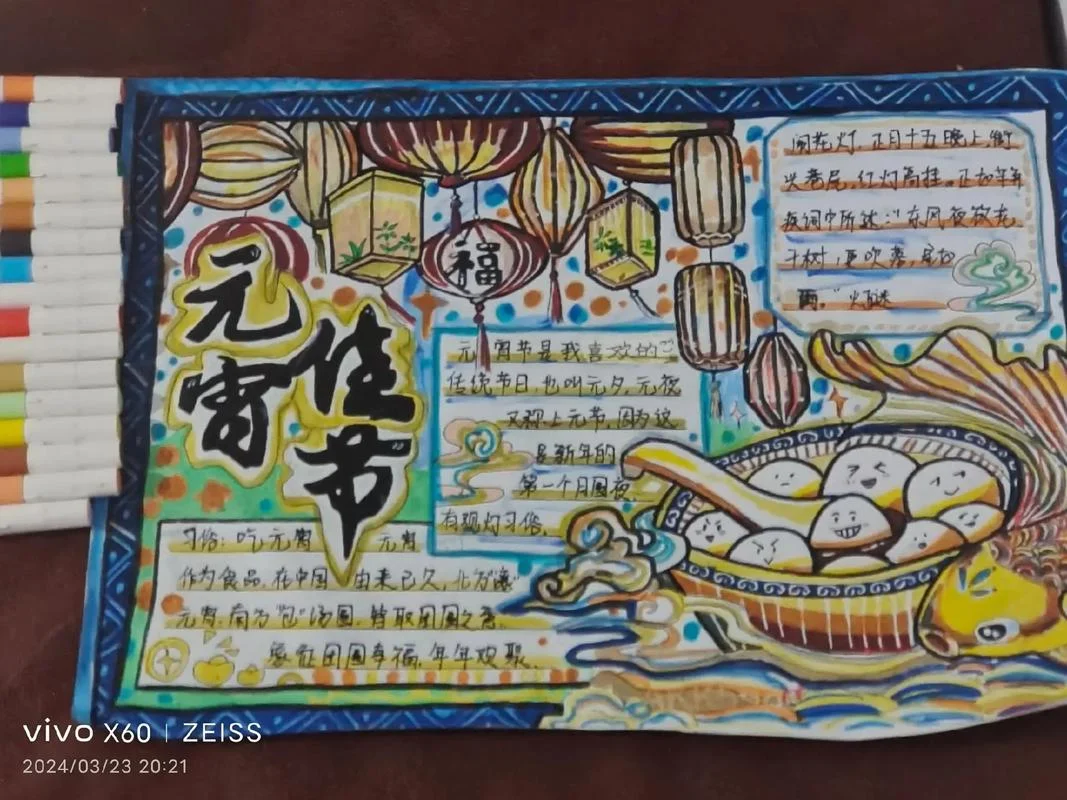 元宵
佳节
福
闹花灯.正月十五晚上,街
头巷尾,红灯高挂。正如辛弃
疾词中所述:"东风夜放花
千树,更吹落,星如
雨。"
元宵节是我喜欢的
传统节日.也叫元夕,元夜
又称上元节,因为这
是新年的
第一个月圆夜.
有观灯习俗.
习俗:吃元宵 元宵
作为食品,在中国由来已久,北方"滚"
元宵.南方"包"汤圆.皆取团圆之意.
象征团圆幸福,年年欢聚.
vivo X60 | ZEISS
2024/03/23 20:21